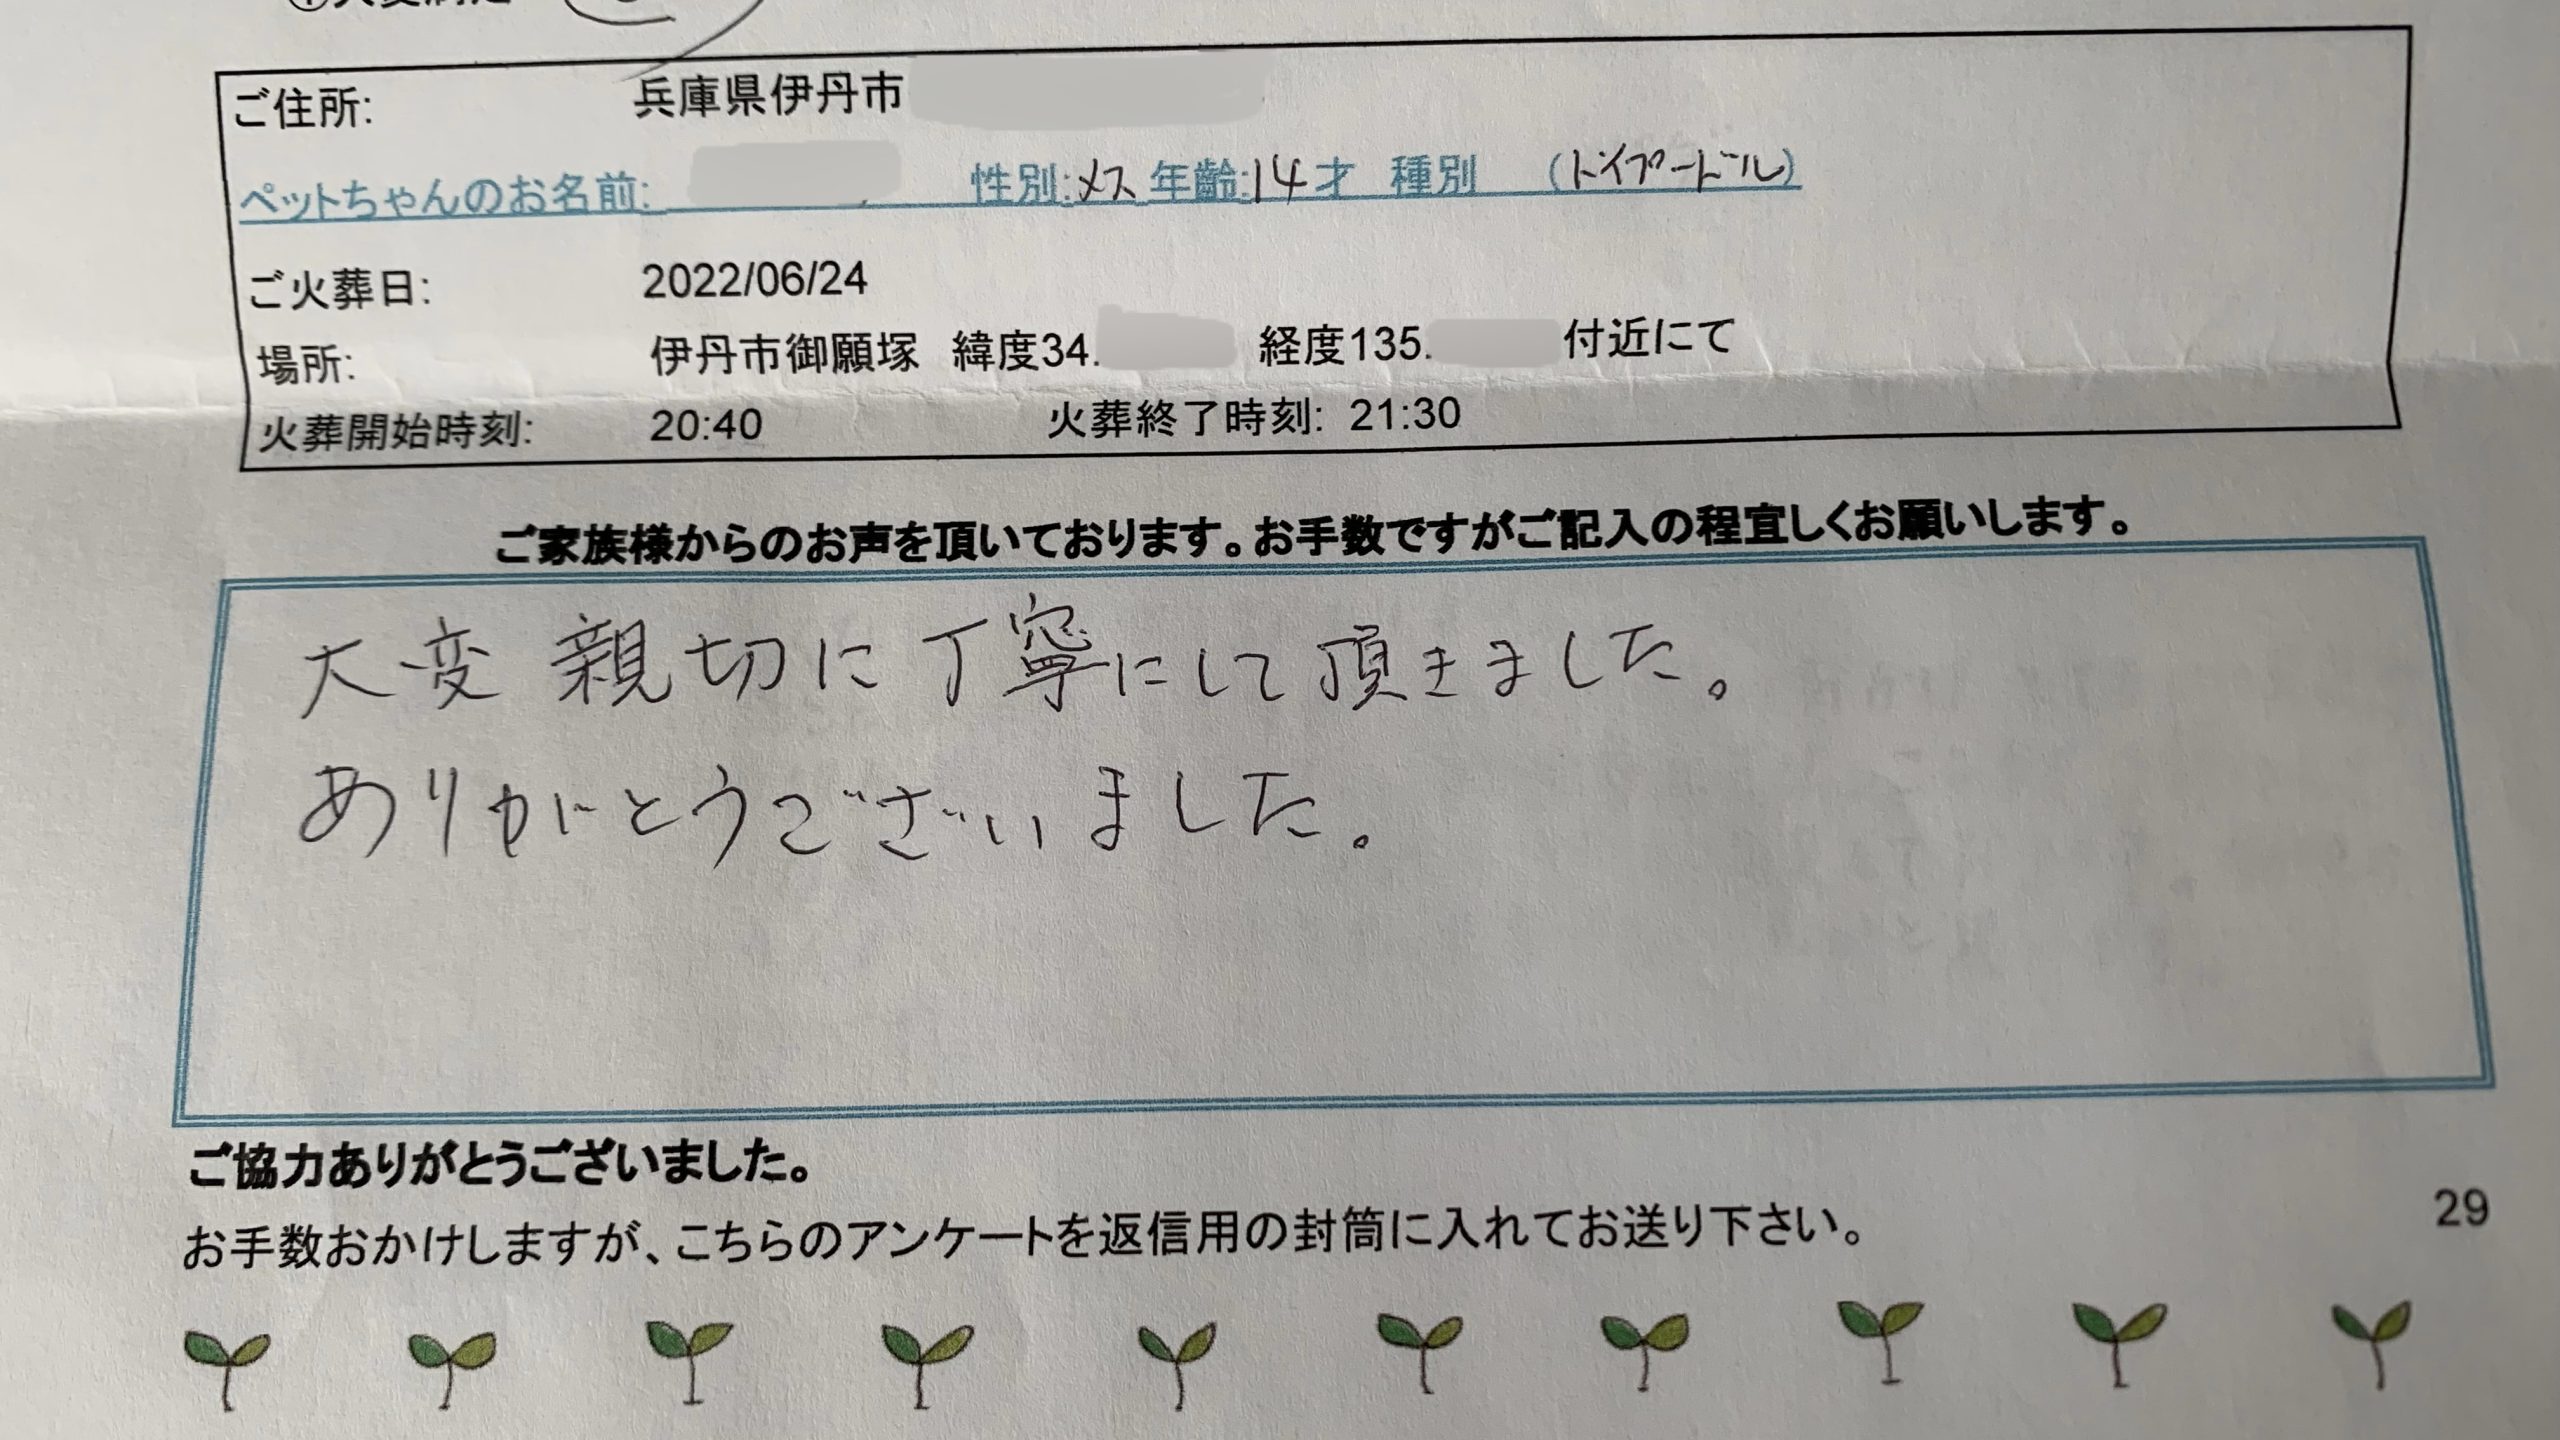 ①大変満足
ご住所: 兵庫県伊丹市
ペットちゃんのお名前: 性別:メス 年齢:14才 種別 (トイプードル)
ご火葬日: 2022/06/24
場所: 伊丹市御願塚 緯度34. 経度135. 付近にて
火葬開始時刻: 20:40 火葬終了時刻: 21:30
ご家族様からのお声を頂いております。お手数ですがご記入の程宜しくお願いします。
大変親切に丁寧にして頂きました。
ありがとうございました。
ご協力ありがとうございました。
29
お手数おかけしますが、こちらのアンケートを返信用の封筒に入れてお送り下さい。